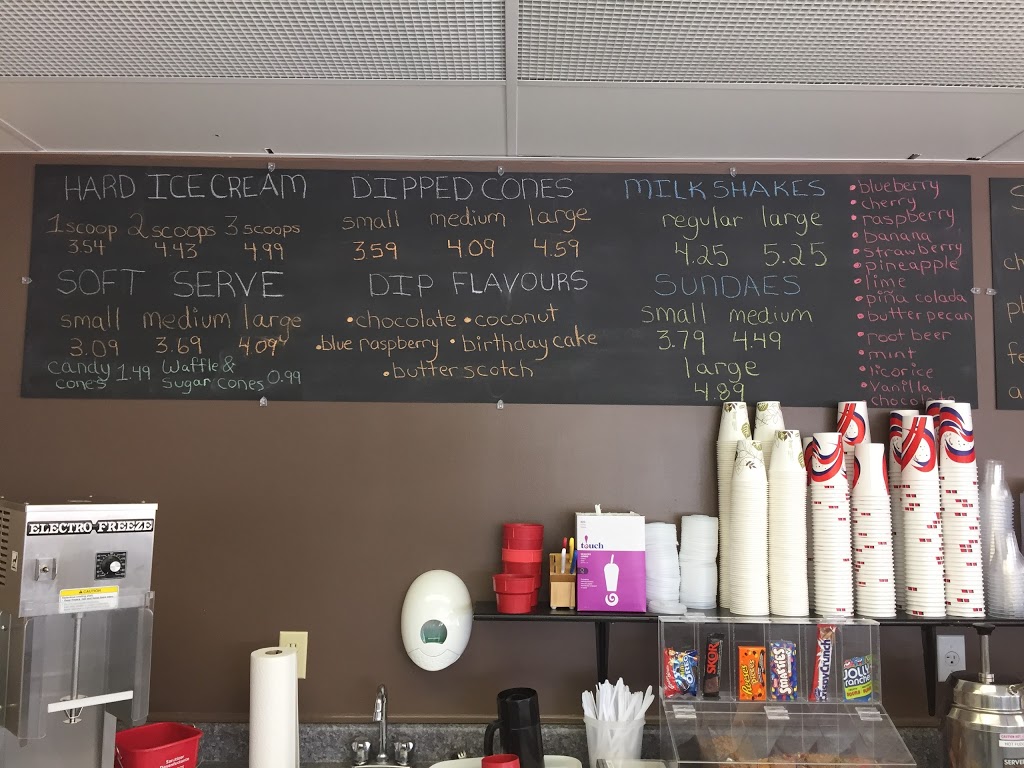 HARD ICE CREAM
1 scoop 2 scoops 3 scoops
3.54 4.43 4.99
SOFT SERVE
small medium large
3.09 3.69 4.09
candy cones 1.49
waffle & sugar cones 0.99
DIPPED CONES
small medium large
3.59 4.09 4.59
DIP FLAVOURS
• chocolate • coconut
• blue raspberry • birthday cake
• butterscotch
MILKSHAKES
regular large
4.25 5.25
SUNDAES
small medium
3.79 4.49
large
4.89
• blueberry
• cherry
• raspberry
• banana
• strawberry
• pineapple
• lime
• piña colada
• butter pecan
• root beer
• mint
• licorice
• vanilla
chocolate
ELECTRO FREEZE
CAUTION
touch
SKOR
Reese's
SMARTIES
JOLLY
rancher